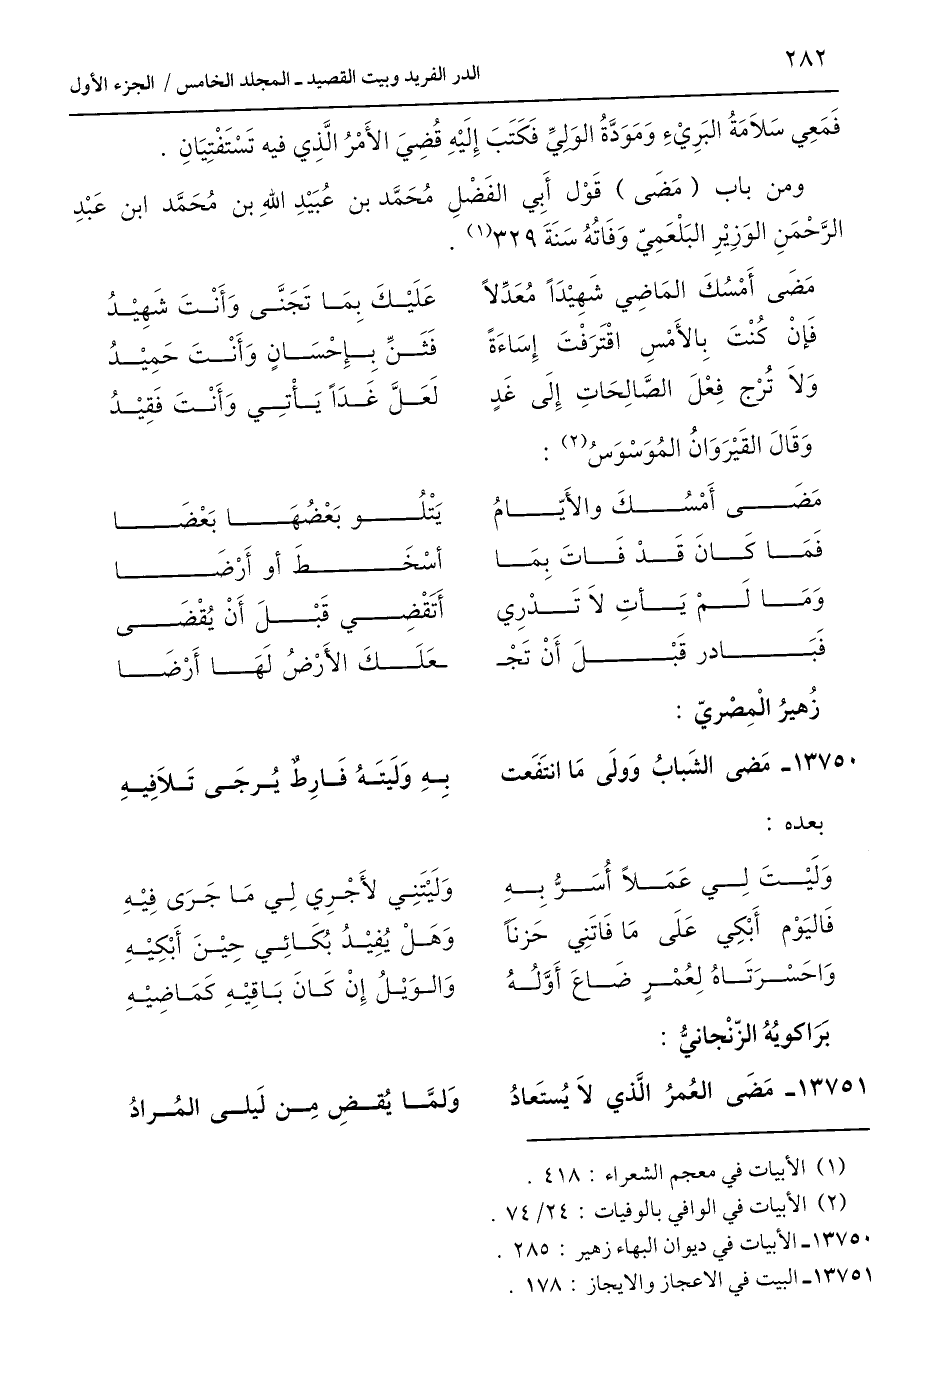 ٢٨٢
الدر الفريد وبيت القصيد ـ المجلد الخامس / الجزء الأول
فَمَعِي سَلاَمَةُ البَرِيْءِ وَمَوَدَّةُ الوَلِيِّ فَكَتَبَ إِلَيْهِ قُضِيَ الأَمْرُ الَّذِي فيه تَسْتَفْتِيَانِ .
ومن باب ( مَضَى ) قَوْل أَبِي الفَضْلِ مُحَمَّد بن عُبَيْدِ اللهِ بن مُحَمَّد ابن عَبْدِ
الرَّحْمَنِ الوَزِيْرِ البَلْعَمِيّ وَفَاتُهُ سَنَةَ ٣٢٩(١) .
مَضَى أَمْسُكَ المَاضِي شَهِيْدَاً مُعَدِّلاً عَلَيْكَ بِمَا تَجَنَّى وَأَنْتَ شَهِيْدُ
فَإِنْ كُنْتَ بِالأَمْسِ اقْتَرَفْتَ إِسَاءَةً فَثَنِّ بِإِحْسَانٍ وَأَنْتَ حَمِيْدُ
وَلاَ تُرْجِ فِعْلَ الصَّالِحَاتِ إِلَى غَدٍ لَعَلَّ غَدَاً يَأْتِي وَأَنْتَ فَقِيْدُ
وَقَالَ القَيْرَوَانُ المُوَسْوَسُ(٢) :
مَضَى أَمْسُكَ والأَيَّامُ يَتْلُو بَعْضُهَا بَعْضَا
فَمَا كَانَ قَدْ فَاتَ بِمَا أَسْخَطَ أو أَرْضَا
وَمَا لَمْ يَأتِ لاَ تَدْرِي أَتَقْضِي قَبْلَ أَنْ يُقْضَى
فَبَادر قَبْلَ أَنْ تَجْـ ـعَلَكَ الأَرْضُ لَهَا أَرْضَا
زُهيرُ الْمِصْرِيّ :
١٣٧٥٠ـ مَضى الشَبابُ وَوَلى مَا انتفَعت بِهِ وَلَيتَهُ فَارِطٌ يُرجَى تَلاَفِيهِ
بعده :
وَلَيْتَ لِي عَمَلاً أُسَرُّ بِهِ وَلَيْتَنِي لأَجْرِي لِي مَا جَرَى فِيْهِ
فَاليَوْم أَبْكِي عَلَى مَا فَاتَنِي حَزناً وَهَلْ يُفِيْدُ بُكَائِي حِيْنَ أَبْكِيْهِ
وَاحَسْرَتَاهُ لِعُمْرٍ ضَاعَ أَوَّلُهُ وَالوَيْلُ إِنْ كَانَ بَاقِيْهِ كَمَاضِيْهِ
بَرَاكويْهُ الزّنْجانيُّ :
١٣٧٥١ـ مَضَى العُمرُ الَّذي لاَ يُستَعادُ وَلمَّا يُقضِ مِن لَيلى المُرادُ
(١) الأبيات في معجم الشعراء : ٤١٨ .
(٢) الأبيات في الوافي بالوفيات : ٢٤/ ٧٤ .
١٣٧٥٠ـ الأبيات في ديوان البهاء زهير : ٢٨٥ .
١٣٧٥١ـ البيت في الاعجاز والايجاز : ١٧٨ .